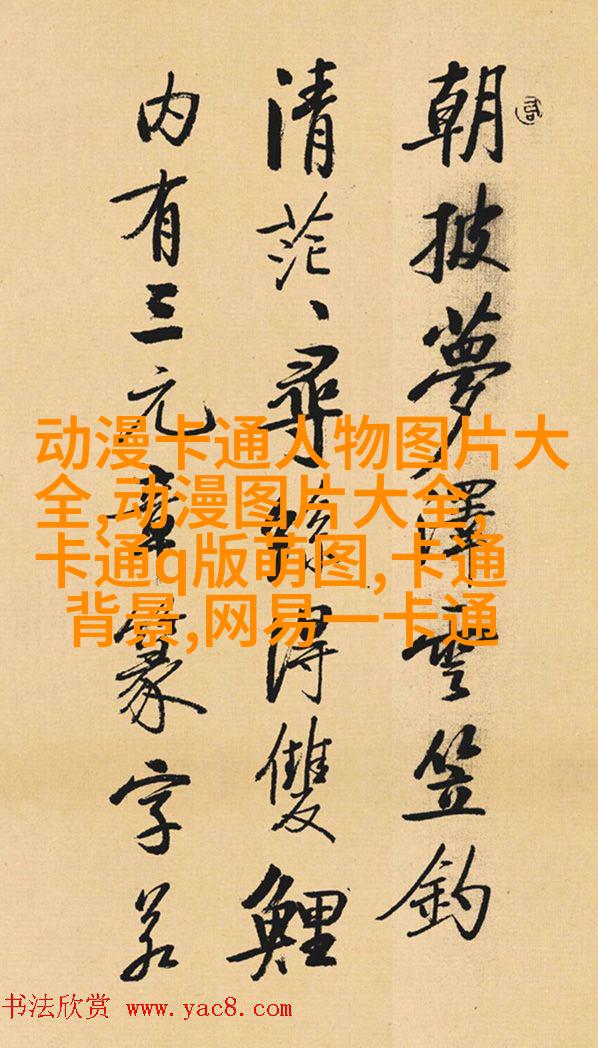 朝披夢澤雲笠釣
清茫、尋絲得雙鯉
内有三元章篆字若
动漫卡通人物图片大
全,动漫图片大全,
卡通q版萌图,卡通
背景,网易一卡通
书法欣赏 www.yac8.com